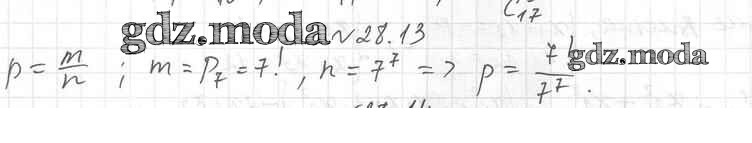 C₁₇
gdz.moda № 28.13
p = m/n ; m = P₇ = 7! , n = 7⁷ => p = 7!/7⁷ . gdz.moda